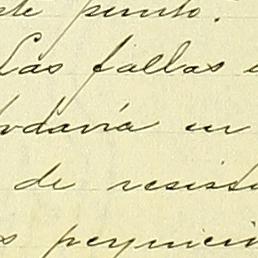 ste punto.
Las fallas
todavía en
de resist
perjuici